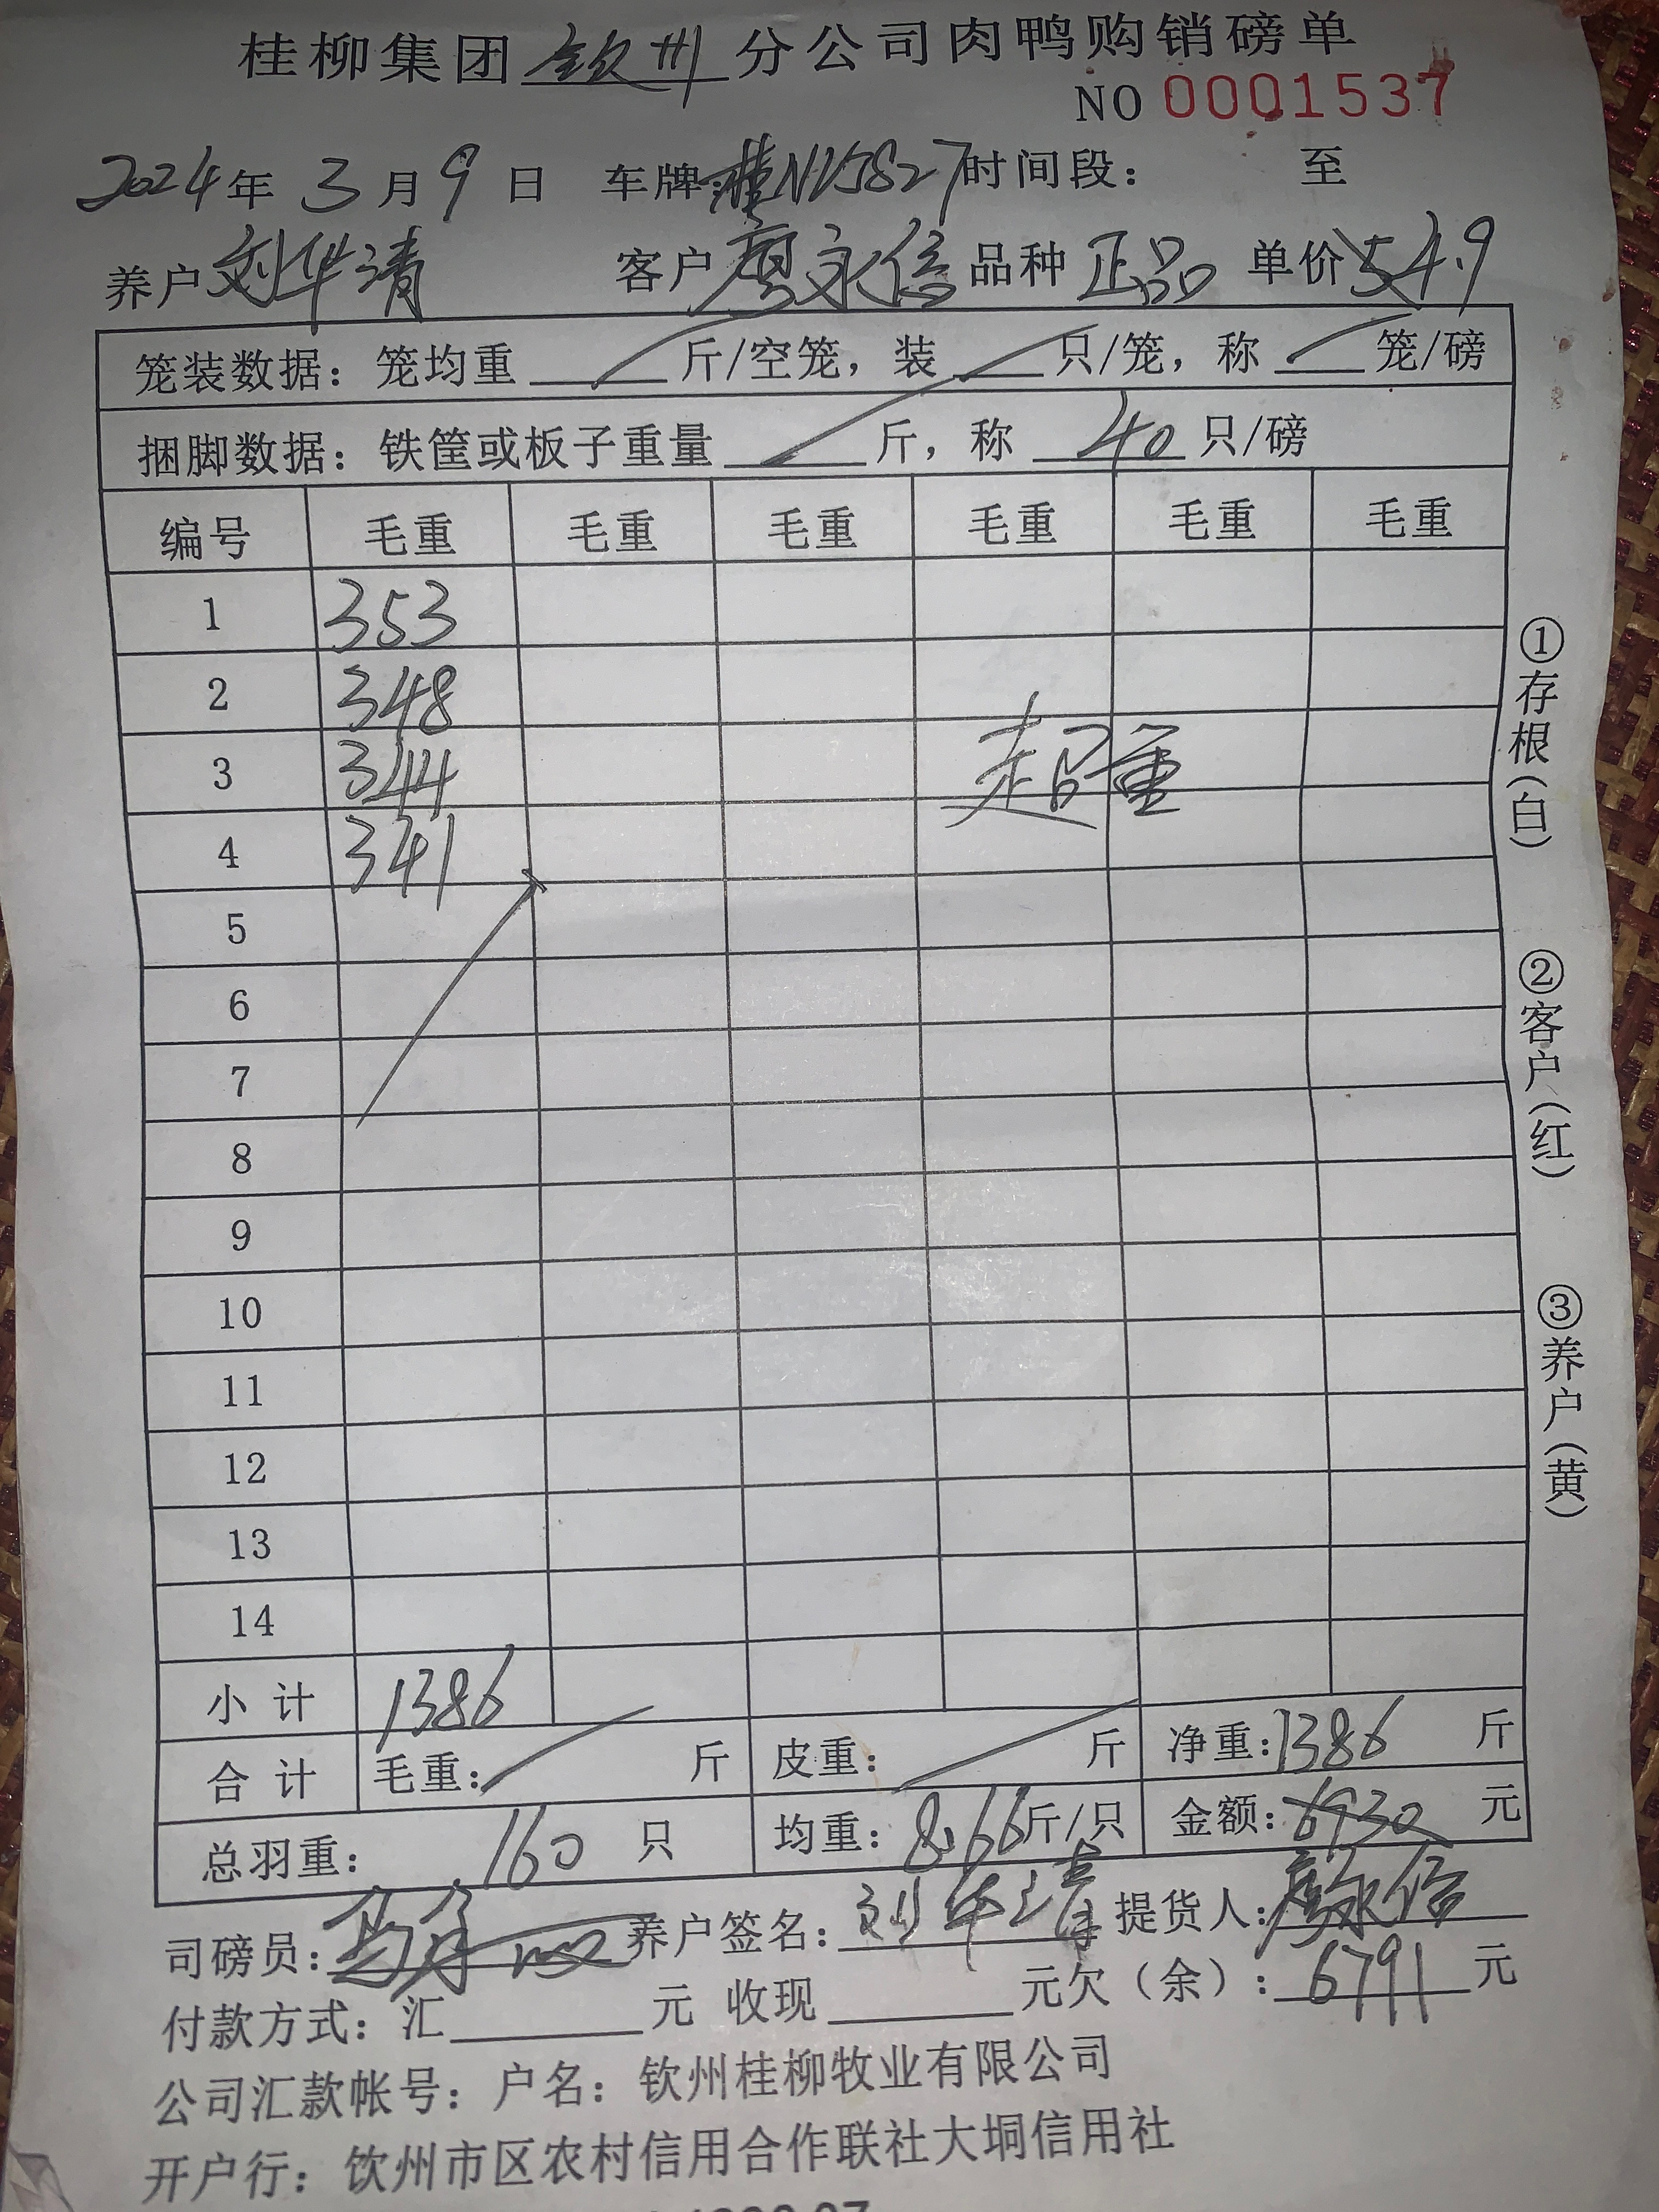 桂柳集团钦州分公司肉鸭购销磅单
NO 0001537
2024年3月9日 车牌:桂N25827时间段: 至
养户刘华清 客户廖永信 品种 正品 单价 4.9
笼装数据:笼均重 斤/空笼,装 只/笼,称 笼/磅
捆脚数据:铁筐或板子重量 斤,称 40 只/磅
编号 毛重 毛重 毛重 毛重 毛重 毛重
1 353
2 348
3 344
超重
4 341
5
6
7
8
9
10
11
12
13
14
小计 1386
合计 毛重: 斤 皮重: 斤 净重:1386 斤
总羽重: 160 只 均重:8.66斤/只 金额:6930 元
司磅员: 养户签名:刘华清 提货人:廖永信
付款方式:汇 元 收现 元欠(余):6791 元
公司汇款帐号:户名:钦州桂柳牧业有限公司
开户行:钦州市区农村信用合作联社大垌信用社
①存根(白)
②客户(红)
③养户(黄)